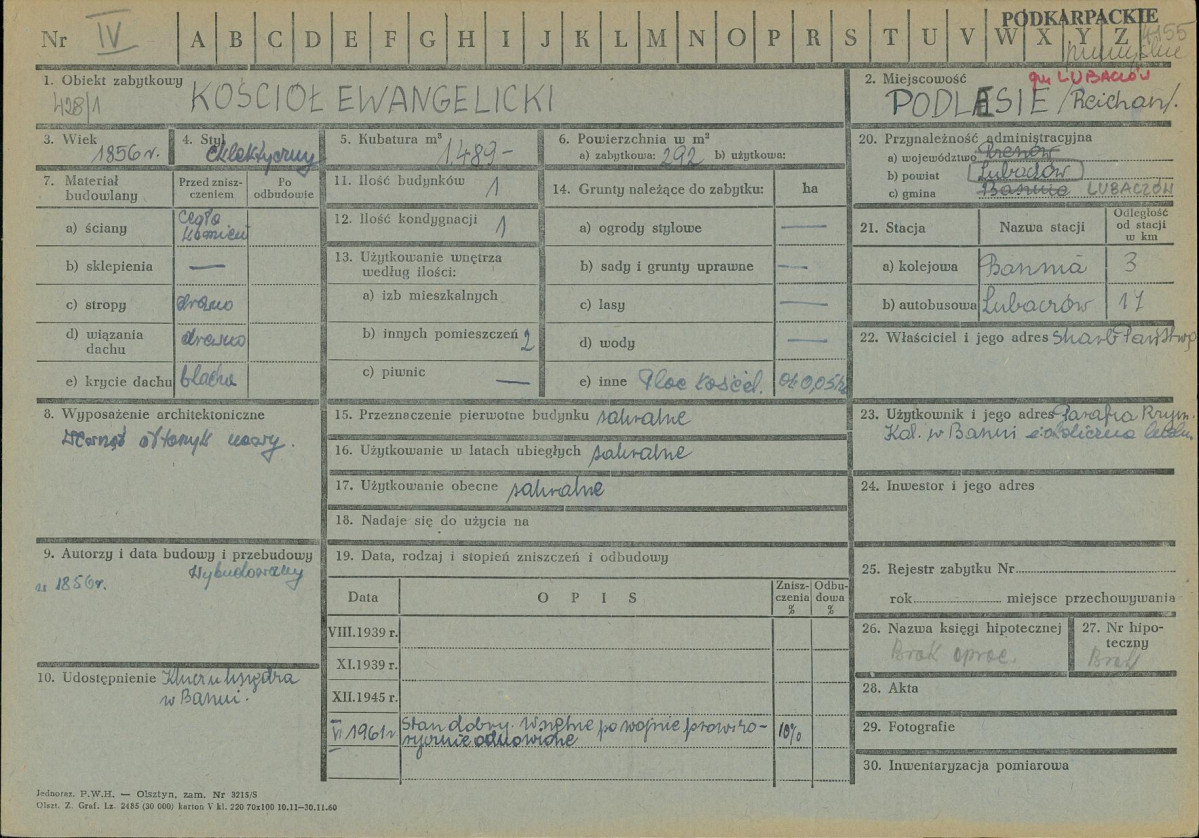 Nr IV A B C D E F G H I J K L M N O P R S T U V W X Y Z
PODKARPACKIE
4155
1. Obiekt zabytkowy
428/1
KOŚCIÓŁ EWANGELICKI
2. Miejscowość
gm LUBACZÓW
PODLESIE /Reichau/.
3. Wiek
1856 r.
4. Styl
eklektyczny
5. Kubatura m³
1.489-
6. Powierzchnia w m²
a) zabytkowa: 292 b) użytkowa:
20. Przynależność administracyjna
a) województwo Rzeszów
b) powiat Lubaczów
c) gmina Basznia LUBACZÓW
7. Materiał budowlany
Przed zniszczeniem
Po odbudowie
a) ściany cegła kamień
b) sklepienia —
c) stropy drewno
d) wiązania dachu drewno
e) krycie dachu blacha
11. Ilość budynków 1
12. Ilość kondygnacji 1
13. Użytkowanie wnętrza według ilości:
a) izb mieszkalnych
b) innych pomieszczeń 2
c) piwnic —
14. Grunty należące do zabytku: ha
a) ogrody stylowe —
b) sady i grunty uprawne —
c) lasy —
d) wody —
e) inne Plac kościel. ok 0,05 ha
21. Stacja
Nazwa stacji
Odległość od stacji w km
a) kolejowa Basznia 3
b) autobusowa Lubaczów 17
22. Właściciel i jego adres Skarb Państwa
8. Wyposażenie architektoniczne
ołtarzyk nowy.
15. Przeznaczenie pierwotne budynku sakralne
16. Użytkowanie w latach ubiegłych sakralne
17. Użytkowanie obecne sakralne
18. Nadaje się do użycia na
23. Użytkownik i jego adres Parafia Rzym.
Kat. w Baszni i okoliczna ludn.
24. Inwestor i jego adres
9. Autorzy i data budowy i przebudowy
Wybudowany
w 1856 r.
19. Data, rodzaj i stopień zniszczeń i odbudowy
Data
O P I S
Zniszczenia %
Odbudowa %
VIII.1939 r.
XI.1939 r.
XII.1945 r.
VI 1961 r
Stan dobry. Wnętrze po wojnie prowizo-
rycznie odnowione
10%
25. Rejestr zabytku Nr
rok miejsce przechowywania
26. Nazwa księgi hipotecznej
Brak oprac.
27. Nr hipoteczny
Brak
10. Udostępnienie Klucz u księdza
w Baszni.
28. Akta
29. Fotografie
30. Inwentaryzacja pomiarowa
Jednoraz. P.W.H. — Olsztyn, zam. Nr 3215/S
Olszt. Z. Graf. Lz. 2485 (30 000) karton V kl. 220 70x100 10.11—30.11.60